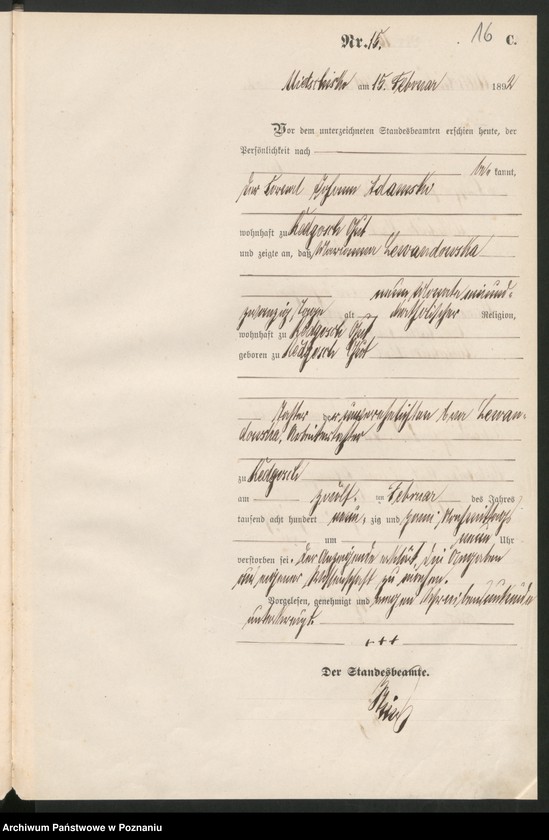 16
Nr. 15. C.
Mietschisko am 15. Februar 1892
Vor dem unterzeichneten Standesbeamten erschien heute, der
Persönlichkeit nach
be kannt,
der Johann Adamski
wohnhaft zu Redgosch Gut
und zeigte an, daß Marianna Lewandowska
neun Monate neunund-
zwanzig Tage alt katholischer Religion,
wohnhaft zu Redgosch Gut
geboren zu Redgosch Gut
Tochter der unverehelichten Lewan-
dowska, Arbeitertochter
zu Redgosch
am zwölf ten Februar des Jahres
tausend acht hundert neun zig und zwei Nachmittags
um neun Uhr
verstorben sei. Der Anzeigende erklärt, die Angaben
aus eigener Wissenschaft zu machen.
Vorgelesen, genehmigt und wegen Schreibensunkunde
unterkreuzt.
+ + +
Der Standesbeamte.
Archiwum Państwowe w Poznaniu